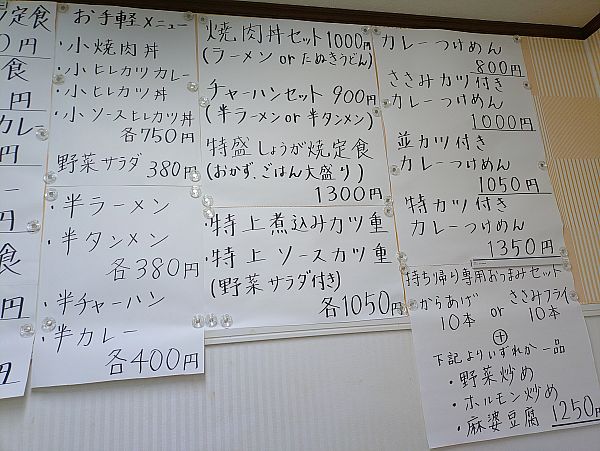 定食
0円
食
円
カレー
円
食
円
円
お手軽メニュー
・小焼肉丼
・小ヒレカツカレー
・小ヒレカツ丼
・小ソースヒレカツ丼
各750円
野菜サラダ 380円
・半ラーメン
・半タンメン
各380円
・半チャーハン
・半カレー
各400円
焼肉丼セット 1000円
(ラーメン or たぬきうどん)
チャーハンセット 900円
(半ラーメン or 半タンメン)
特盛しょうが焼定食
(おかず、ごはん大盛り)
1300円
・特上煮込みカツ重
・特上ソースカツ重
(野菜サラダ付き)
各1050円
カレーつけめん
800円
ささみカツ付き
カレーつけめん
1000円
並カツ付き
カレーつけめん
1050円
特カツ付き
カレーつけめん
1350円
持ち帰り専用おつまみセット
からあげ ささみフライ
10本 or 10本
⊕
下記よりいずれか一品
・野菜炒め
・ホルモン炒め
・麻婆豆腐 1250円